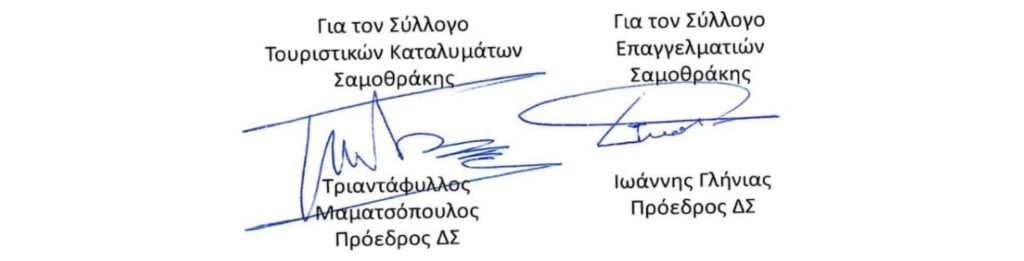 Για τον Σύλλογο
Τουριστικών Καταλυμάτων
Σαμοθράκης
Τριαντάφυλλος
Μαματσόπουλος
Πρόεδρος ΔΣ
Για τον Σύλλογο
Επαγγελματιών
Σαμοθράκης
Ιωάννης Γλήνιας
Πρόεδρος ΔΣ